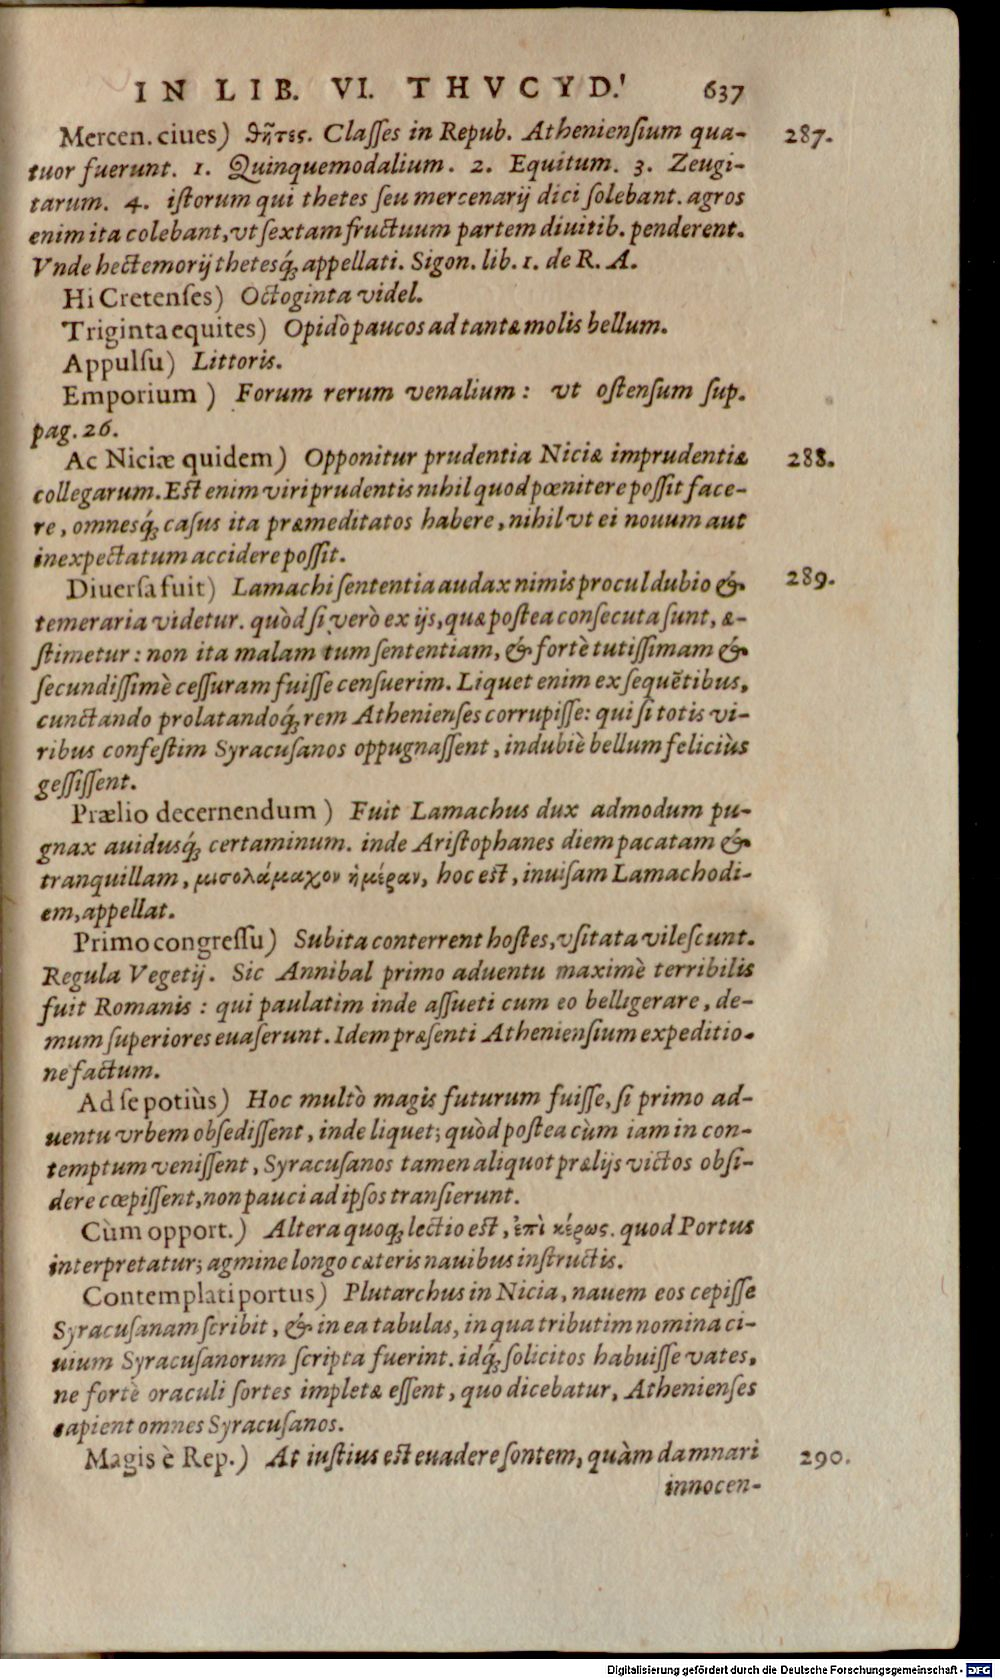 IN LIB. VI. THVCYD. 637
Mercen. ciues) θῆτες. Claſſes in Repub. Athenienſium qua- 287.
tuor fuerunt. 1. Quinquemodalium. 2. Equitum. 3. Zeugi-
tarum. 4. iſtorum qui thetes ſeu mercenarij dici ſolebant. agros
enim ita colebant, vt ſextam fructuum partem diuitib. penderent.
Vnde hectemorij thetesq́; appellati. Sigon. lib. 1. de R. A.
Hi Cretenſes) Octoginta videl.
Triginta equites) Opidò paucos ad tantæ molis bellum.
Appulſu) Littoris.
Emporium) Forum rerum venalium: vt oſtenſum ſup.
pag. 26.
Ac Niciæ quidem) Opponitur prudentia Niciæ imprudentiæ 288.
collegarum. Eſt enim viri prudentis nihil quod pœnitere poſſit face-
re, omnesq́; caſus ita præmeditatos habere, nihil vt ei nouum aut
inexpectatum accidere poſſit.
Diuerſa fuit) Lamachi ſententia audax nimis procul dubio & 289.
temeraria videtur. quòd ſi verò ex ijs, quæ poſtea conſecuta ſunt, æ-
ſtimetur: non ita malam tum ſententiam, & fortè tutiſſimam &
ſecundiſſimè ceſſuram fuiſſe cenſuerim. Liquet enim ex ſequẽtibus,
cunctando prolatandoq́; rem Athenienſes corrupiſſe: qui ſi totis vi-
ribus confeſtim Syracuſanos oppugnaſſent, indubiè bellum feliciùs
geſſiſſent.
Prælio decernendum) Fuit Lamachus dux admodum pu-
gnax auidusq́; certaminum. inde Ariſtophanes diem pacatam &
tranquillam, μισολάμαχον ἡμέραν, hoc eſt, inuiſam Lamacho di-
em, appellat.
Primo congreſſu) Subita conterrent hoſtes, vſitata vileſcunt.
Regula Vegetij. Sic Annibal primo aduentu maximè terribilis
fuit Romanis: qui paulatim inde aſſueti cum eo belligerare, de-
mum ſuperiores euaſerunt. Idem præſenti Athenienſium expeditio-
ne factum.
Ad ſe potiùs) Hoc multò magis futurum fuiſſe, ſi primo ad-
uentu vrbem obſediſſent, inde liquet; quòd poſtea cùm iam in con-
temptum veniſſent, Syracuſanos tamen aliquot prælijs victos obſi-
dere cœpiſſent, non pauci ad ipſos tranſierunt.
Cùm opport.) Altera quoq; lectio eſt, ἐπὶ κέρως. quod Portus
interpretatur; agmine longo cæteris nauibus inſtructis.
Contemplati portus) Plutarchus in Nicia, nauem eos cepiſſe
Syracuſanam ſcribit, & in ea tabulas, in qua tributim nomina ci-
uium Syracuſanorum ſcripta fuerint. idq́; ſolicitos habuiſſe vates,
ne fortè oraculi ſortes impletæ eſſent, quo dicebatur, Athenienſes
capient omnes Syracuſanos.
Magis è Rep.) At iuſtius eſt euadere ſontem, quàm damnari 290.
innocen-
Digitalisierung gefördert durch die Deutsche Forschungsgemeinschaft - DFG